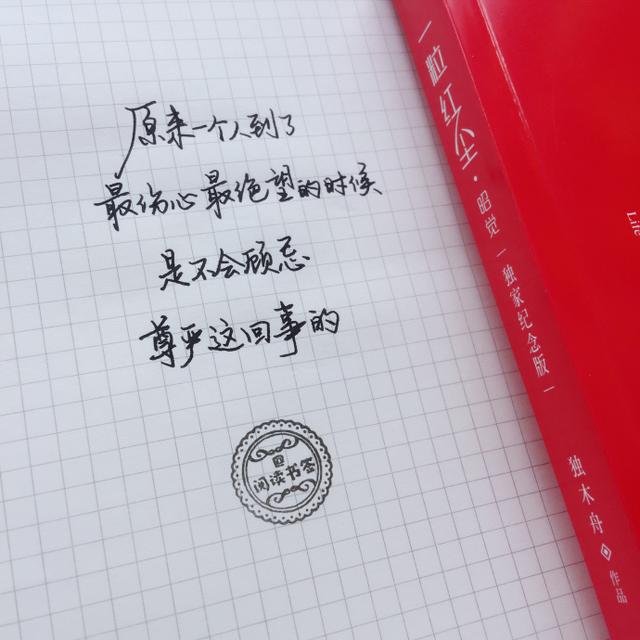 原来一个人到了
最伤心最绝望的时候
是不会顾忌
尊严这回事的
@
阅读书签
一粒红尘·昭觉｜独家纪念版｜
独木舟 作品
Life